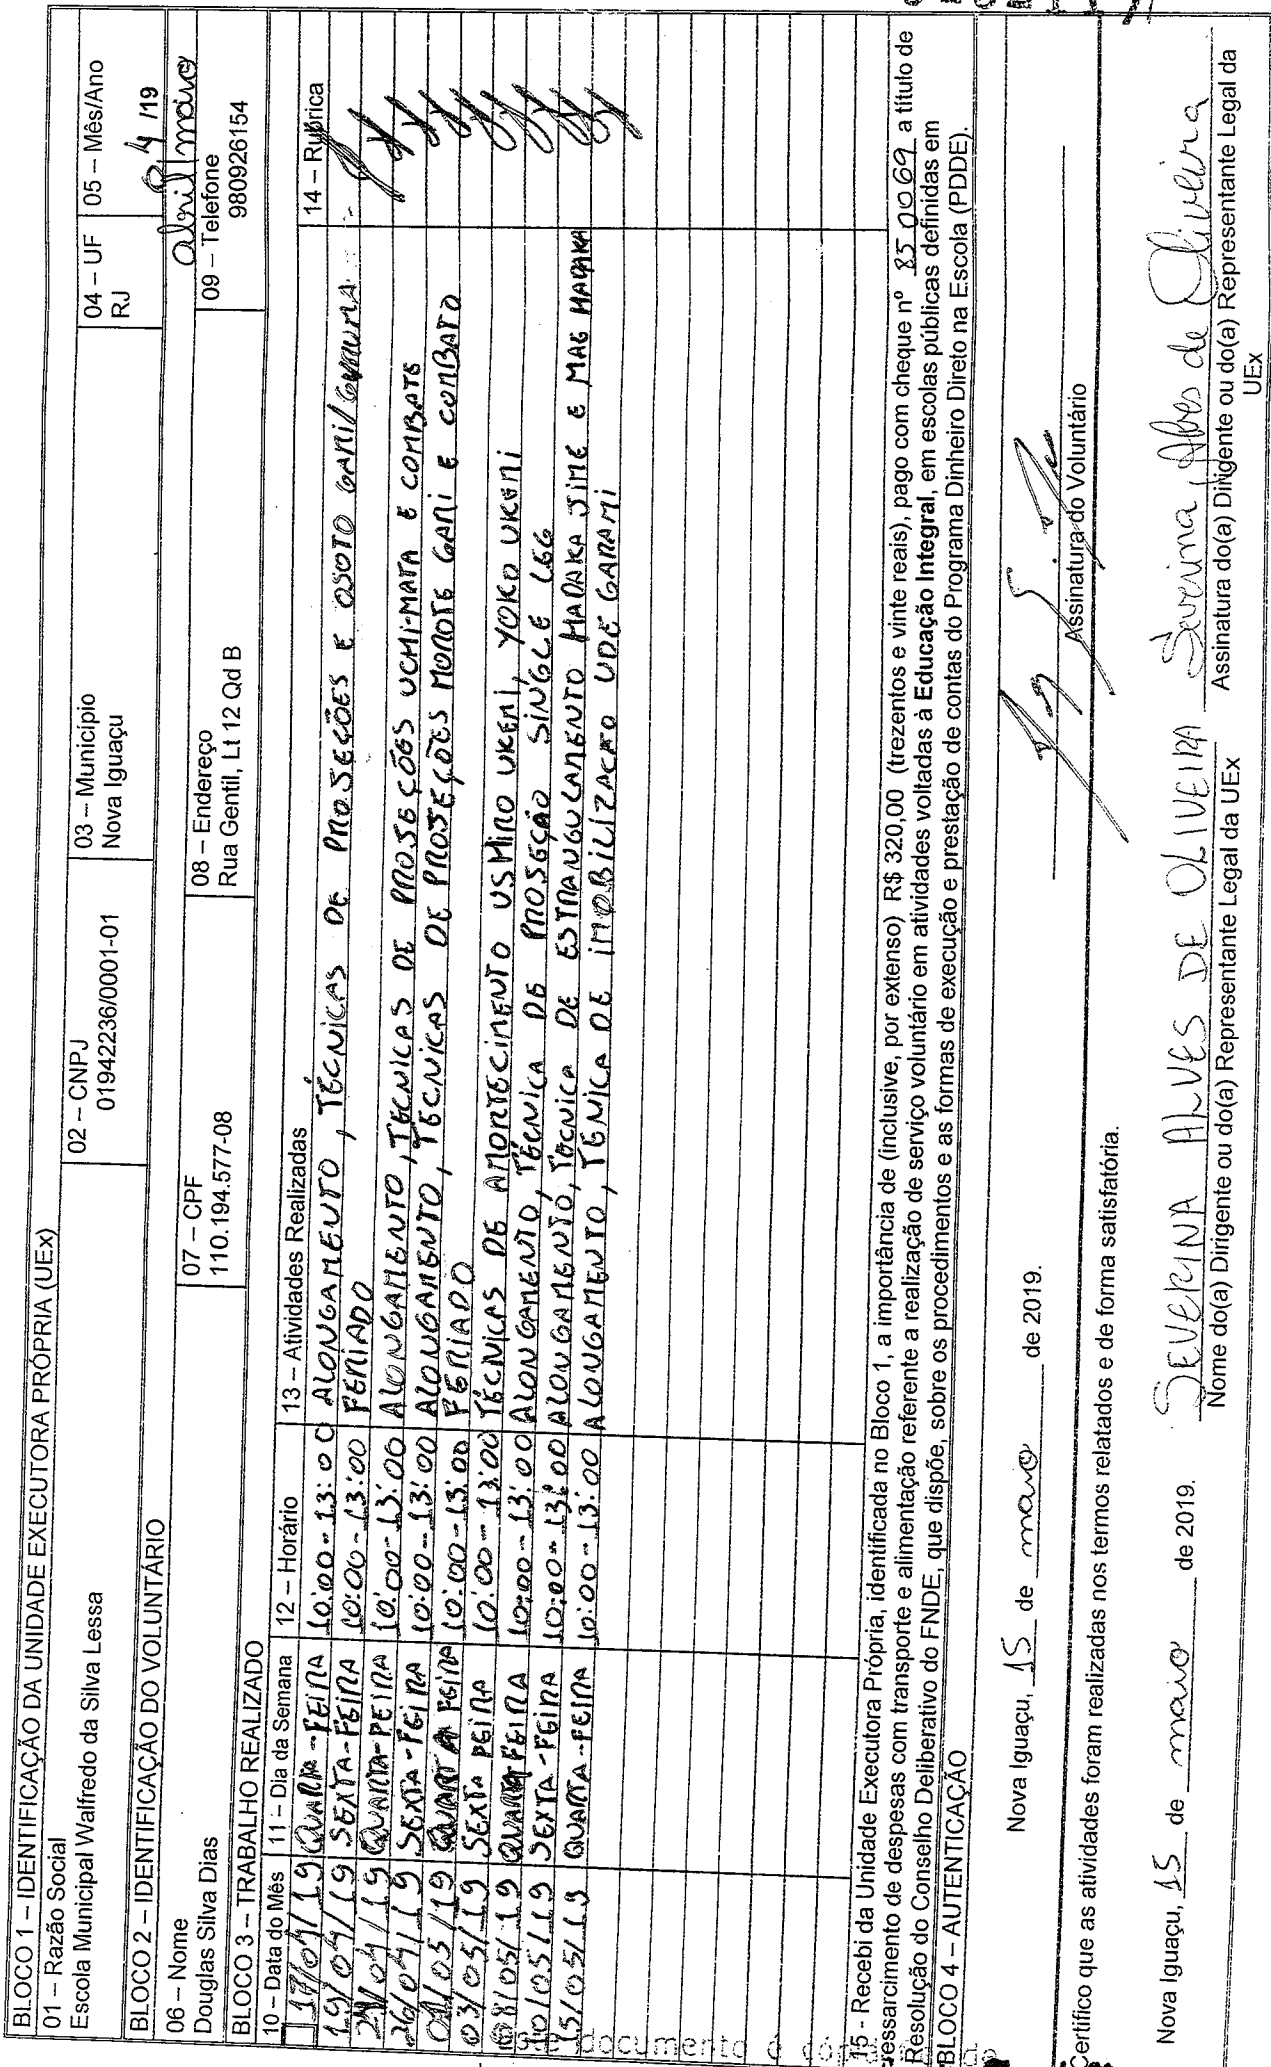 BLOCO 1 – IDENTIFICAÇÃO DA UNIDADE EXECUTORA PRÓPRIA (UEx)
01 – Razão Social
Escola Municipal Walfredo da Silva Lessa
02 – CNPJ
01942236/0001-01
03 – Município
Nova Iguaçu
04 – UF
RJ
05 – Mês/Ano
04 /19
abril/maio
BLOCO 2 – IDENTIFICAÇÃO DO VOLUNTÁRIO
06 – Nome
Douglas Silva Dias
07 – CPF
110.194.577-08
08 – Endereço
Rua Gentil, Lt 12 Qd B
09 – Telefone
980926154
BLOCO 3 – TRABALHO REALIZADO
10 – Data do Mês 11 – Dia da Semana 12 – Horário 13 – Atividades Realizadas 14 – Rubrica
17/04/19 QUARTA-FEIRA 10:00-13:00 ALONGAMENTO, TÉCNICAS DE PROJEÇÕES E OSOTO GARI/
19/04/19 SEXTA-FEIRA 10:00-13:00 FERIADO
24/04/19 QUARTA-FEIRA 10:00-13:00 ALONGAMENTO, TÉCNICAS DE PROJEÇÕES UCHI-MATA E COMBATE
26/04/19 SEXTA-FEIRA 10:00-13:00 ALONGAMENTO, TÉCNICAS DE PROJEÇÕES MOROTE GARI E COMBATO
01/05/19 QUARTA FEIRA 10:00-13:00 FERIADO
03/05/19 SEXTA FEIRA 10:00-13:00 TÉCNICAS DE AMORTECIMENTO USHIRO UKEMI, YOKO UKEMI
08/05/19 QUARTA FEIRA 10:00-13:00 ALONGAMENTO, TÉCNICA DE PROJEÇÃO SINGLE LEG
10/05/19 SEXTA-FEIRA 10:00-13:00 ALONGAMENTO, TÉCNICA DE ESTRANGULAMENTO HADAKA JIME E MAE HADAKA
15/05/19 QUARTA-FEIRA 10:00-13:00 ALONGAMENTO, TENICA DE IMOBILIZACAO UDE GARAMI
15 - Recebi da Unidade Executora Própria, identificada no Bloco 1, a importância de (inclusive, por extenso) R$ 320,00 (trezentos e vinte reais), pago com cheque nº 850069 a título de
ressarcimento de despesas com transporte e alimentação referente a realização de serviço voluntário em atividades voltadas à Educação Integral, em escolas públicas definidas em
Resolução do Conselho Deliberativo do FNDE, que dispõe, sobre os procedimentos e as formas de execução e prestação de contas do Programa Dinheiro Direto na Escola (PDDE).
BLOCO 4 – AUTENTICAÇÃO
Nova Iguaçu, 15 de maio de 2019.
Assinatura do Voluntário
Certifico que as atividades foram realizadas nos termos relatados e de forma satisfatória.
Nova Iguaçu, 15 de maio de 2019.
SEVERINA ALVES DE OLIVEIRA
Nome do(a) Dirigente ou do(a) Representante Legal da UEx
Severina Alves de Oliveira
Assinatura do(a) Dirigente ou do(a) Representante Legal da
UEx
documento é